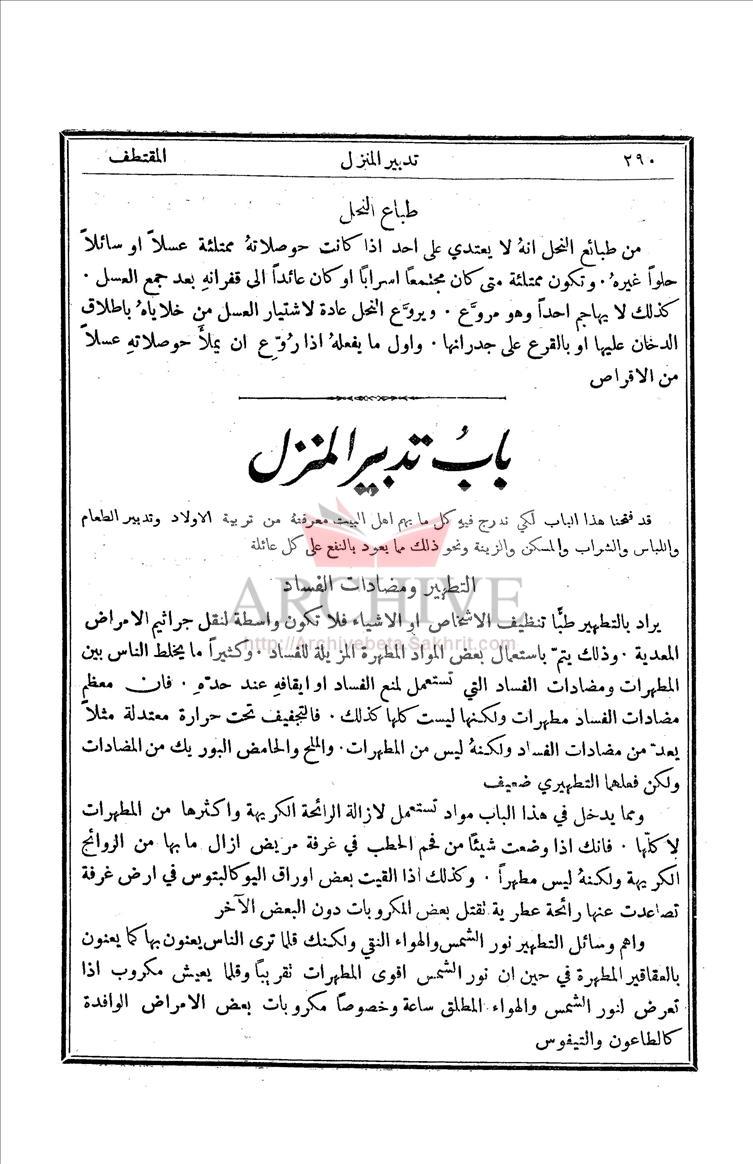 ٢٩٠ تدبير المنزل المقتطف
طباع النحل
من طبائع النحل انهُ لا يعتدي على احد اذا كانت حوصلاتهُ ممتلئة عسلاً او سائلاً
حلواً غيرهُ ٠ وتكون ممتلئة متى كان مجتمعاً اسراباً او كان عائداً الى قفرانهِ بعد جمع العسل ٠
كذلك لا يهاجم احداً وهو مروَّع ٠ ويروَّع النحل عادة لاشتيار العسل من خلاياهُ باطلاق
الدخان عليها او بالقرع على جدرانها ٠ واول ما يفعلهُ اذا رُوِّع ان يملأَ حوصلاتهِ عسلاً
من الاقراص
بابُ تدبير المنزل
قد فتحنا هذا الباب لكي ندرج فيه كل ما يهم اهل البيت معرفتهُ من تربية الاولاد وتدبير الطعام
واللباس والشراب والمسكن والزينة ونحو ذلك مما يعود بالنفع على كل عائلة
التطهير ومضادات الفساد
ARCHIVE
يراد بالتطهير طبًّا تنظيف الاشخاص او الاشياء فلا تكون واسطة لنقل جراثيم الامراض
http://Archivebeta.Sakhrit.com
المعدية ٠ وذلك يتمّ باستعمال بعض المواد المطهرة المزيلة للفساد ٠ وكثيراً ما يخلط الناس بين
المطهرات ومضادات الفساد التي تستعمل لمنع الفساد او ايقافهِ عند حدّهِ ٠ فان معظم
مضادات الفساد مطهرات ولكنها ليست كلها كذلك ٠ فالتجفيف تحت حرارة معتدلة مثلاً
يعدّ من مضادات الفساد ولكنهُ ليس من المطهرات ٠ والملح والحامض البوريك من المضادات
ولكن فعلها التطهيري ضعيف
ومما يدخل في هذا الباب مواد تستعمل لازالة الرائحة الكريهة واكثرها من المطهرات
لا كلّها ٠ فانك اذا وضعت شيئًا من فحم الحطب في غرفة مريض ازال ما بها من الروائح
الكريهة ولكنهُ ليس مطهراً ٠ وكذلك اذا القيت بعض اوراق اليوكالبتوس في ارض غرفة
تصاعدت عنها رائحة عطرية تقتل بعض المكروبات دون البعض الآخر
واهم وسائل التطهير نور الشمس والهواء النقي ولكنك قلما ترى الناس يعنون بها كما يعنون
بالعقاقير المطهرة في حين ان نور الشمس اقوى المطهرات تقريباً وقلما يعيش مكروب اذا
تعرض لنور الشمس والهواء المطلق ساعة وخصوصاً مكروبات بعض الامراض الوافدة
كالطاعون والتيفوس